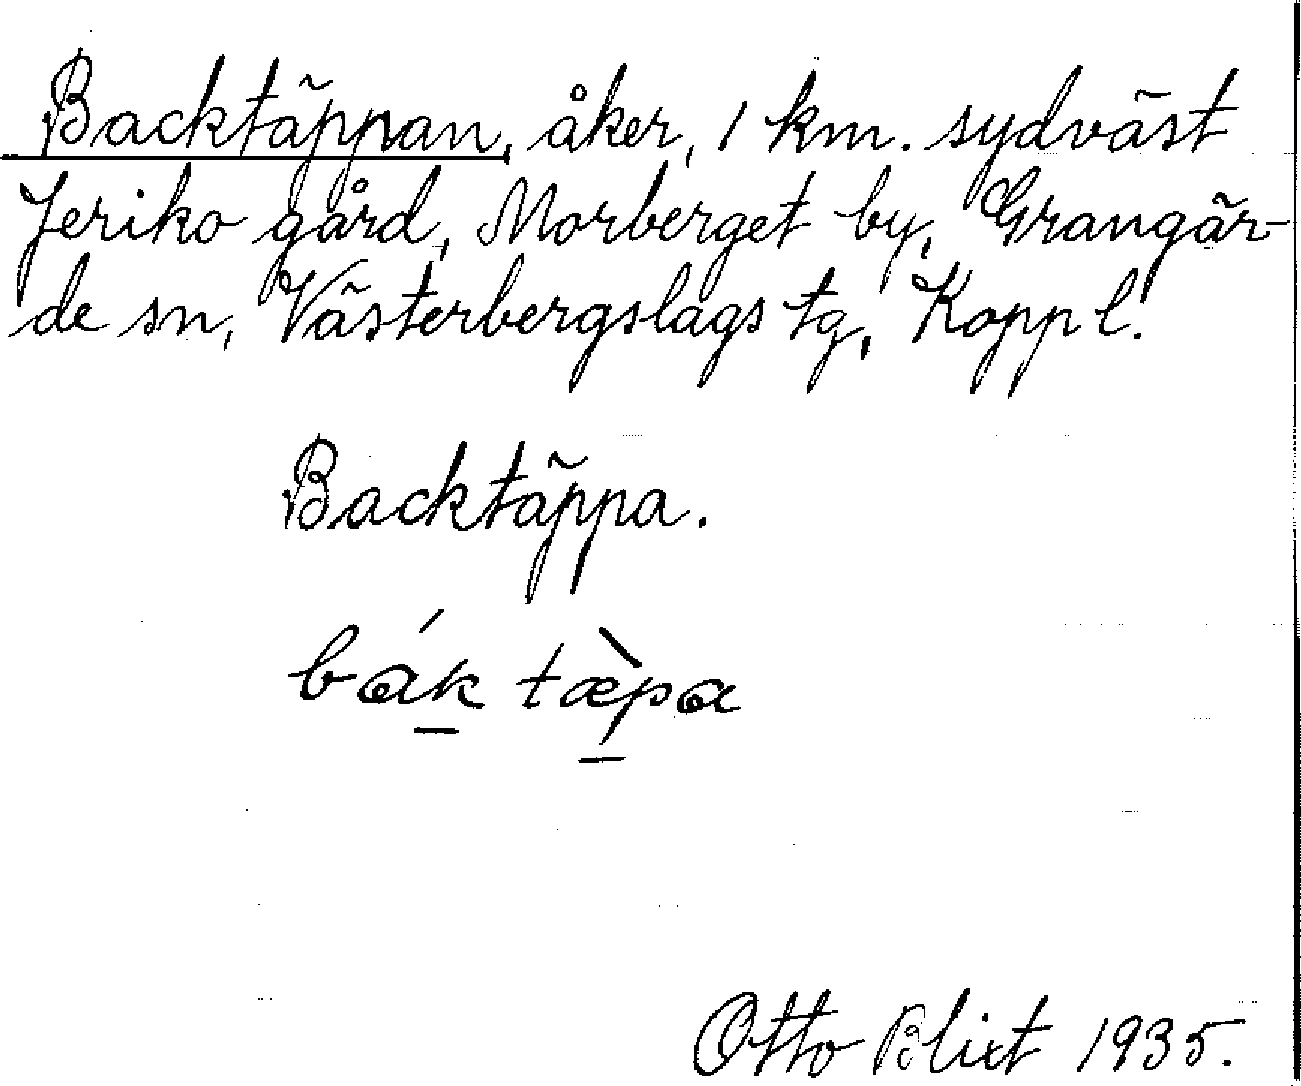 Backtäppan, åker, 1 km. sydväst
Jeriko gård, Morberget by, Grangär-
de sn, Västerbergslags tg, Kopp l.
Backtäppa.
bák tæ̀pa
Otto Blixt 1935.